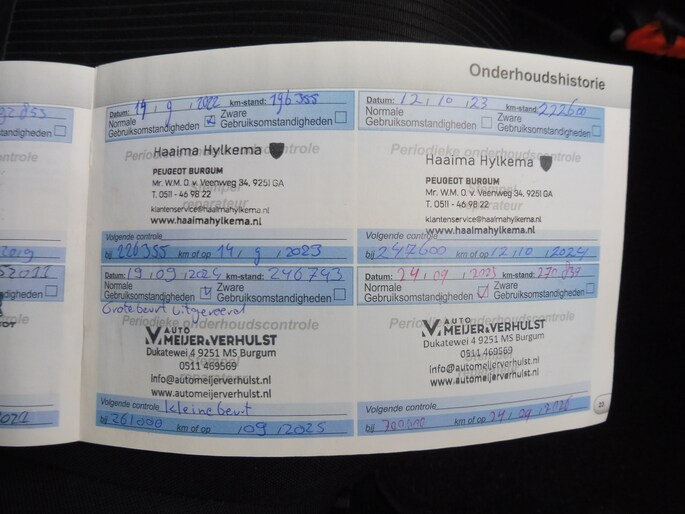 Onderhoudshistorie
2855
Gebruiksomstandigheden
2019
52011
Gebruiksomstandigheden
2021
Datum: 19, 9, 2022 km-stand: 196355
Normale Gebruiksomstandigheden Zware Gebruiksomstandigheden
Periodieke onderhoudscontrole
Haaima Hylkema
PEUGEOT BURGUM
Mr. W.M. O. v. Veenweg 34, 9251 GA
T. 0511 - 46 98 22
Stempel reparateur
klantenservice@haaimahylkema.nl
www.haaimahylkema.nl
Volgende controle
bij 226355 km of op 14, 9, 2023
Datum: 12, 10, 23 km-stand: 222600
Normale Gebruiksomstandigheden Zware Gebruiksomstandigheden
Periodieke onderhoudscontrole
Haaima Hylkema
PEUGEOT BURGUM
Mr. W.M. O. v. Veenweg 34, 9251 GA
T. 0511 - 46 98 22
Stempel reparateur
klantenservice@haaimahylkema.nl
www.haaimahylkema.nl
Volgende controle
bij 247600 km of op 12, 10, 2024
Datum: 19, 09, 2024 km-stand: 246743
Normale Gebruiksomstandigheden Zware Gebruiksomstandigheden
Grote beurt uitgevoerd
Periodieke onderhoudscontrole
AUTO
MEIJER&VERHULST
Dukatewei 4 9251 MS Burgum
0511 469569
Stempel reparateur
info@automeijerverhulst.nl
www.automeijerverhulst.nl
Volgende controle kleine beurt
bij 261000 km of op , 09, 2025
Datum: 24, 09, km-stand:
Normale Gebruiksomstandigheden Zware Gebruiksomstandigheden
Periodieke onderhoudscontrole
AUTO
MEIJER&VERHULST
Dukatewei 4 9251 MS Burgum
0511 469569
Stempel reparateur
info@automeijerverhulst.nl
www.automeijerverhulst.nl
Volgende controle
bij km of op 24, 09, 2026
23